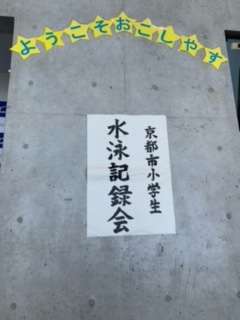 ようこそおこしやす
京都市小学生
水泳記録会